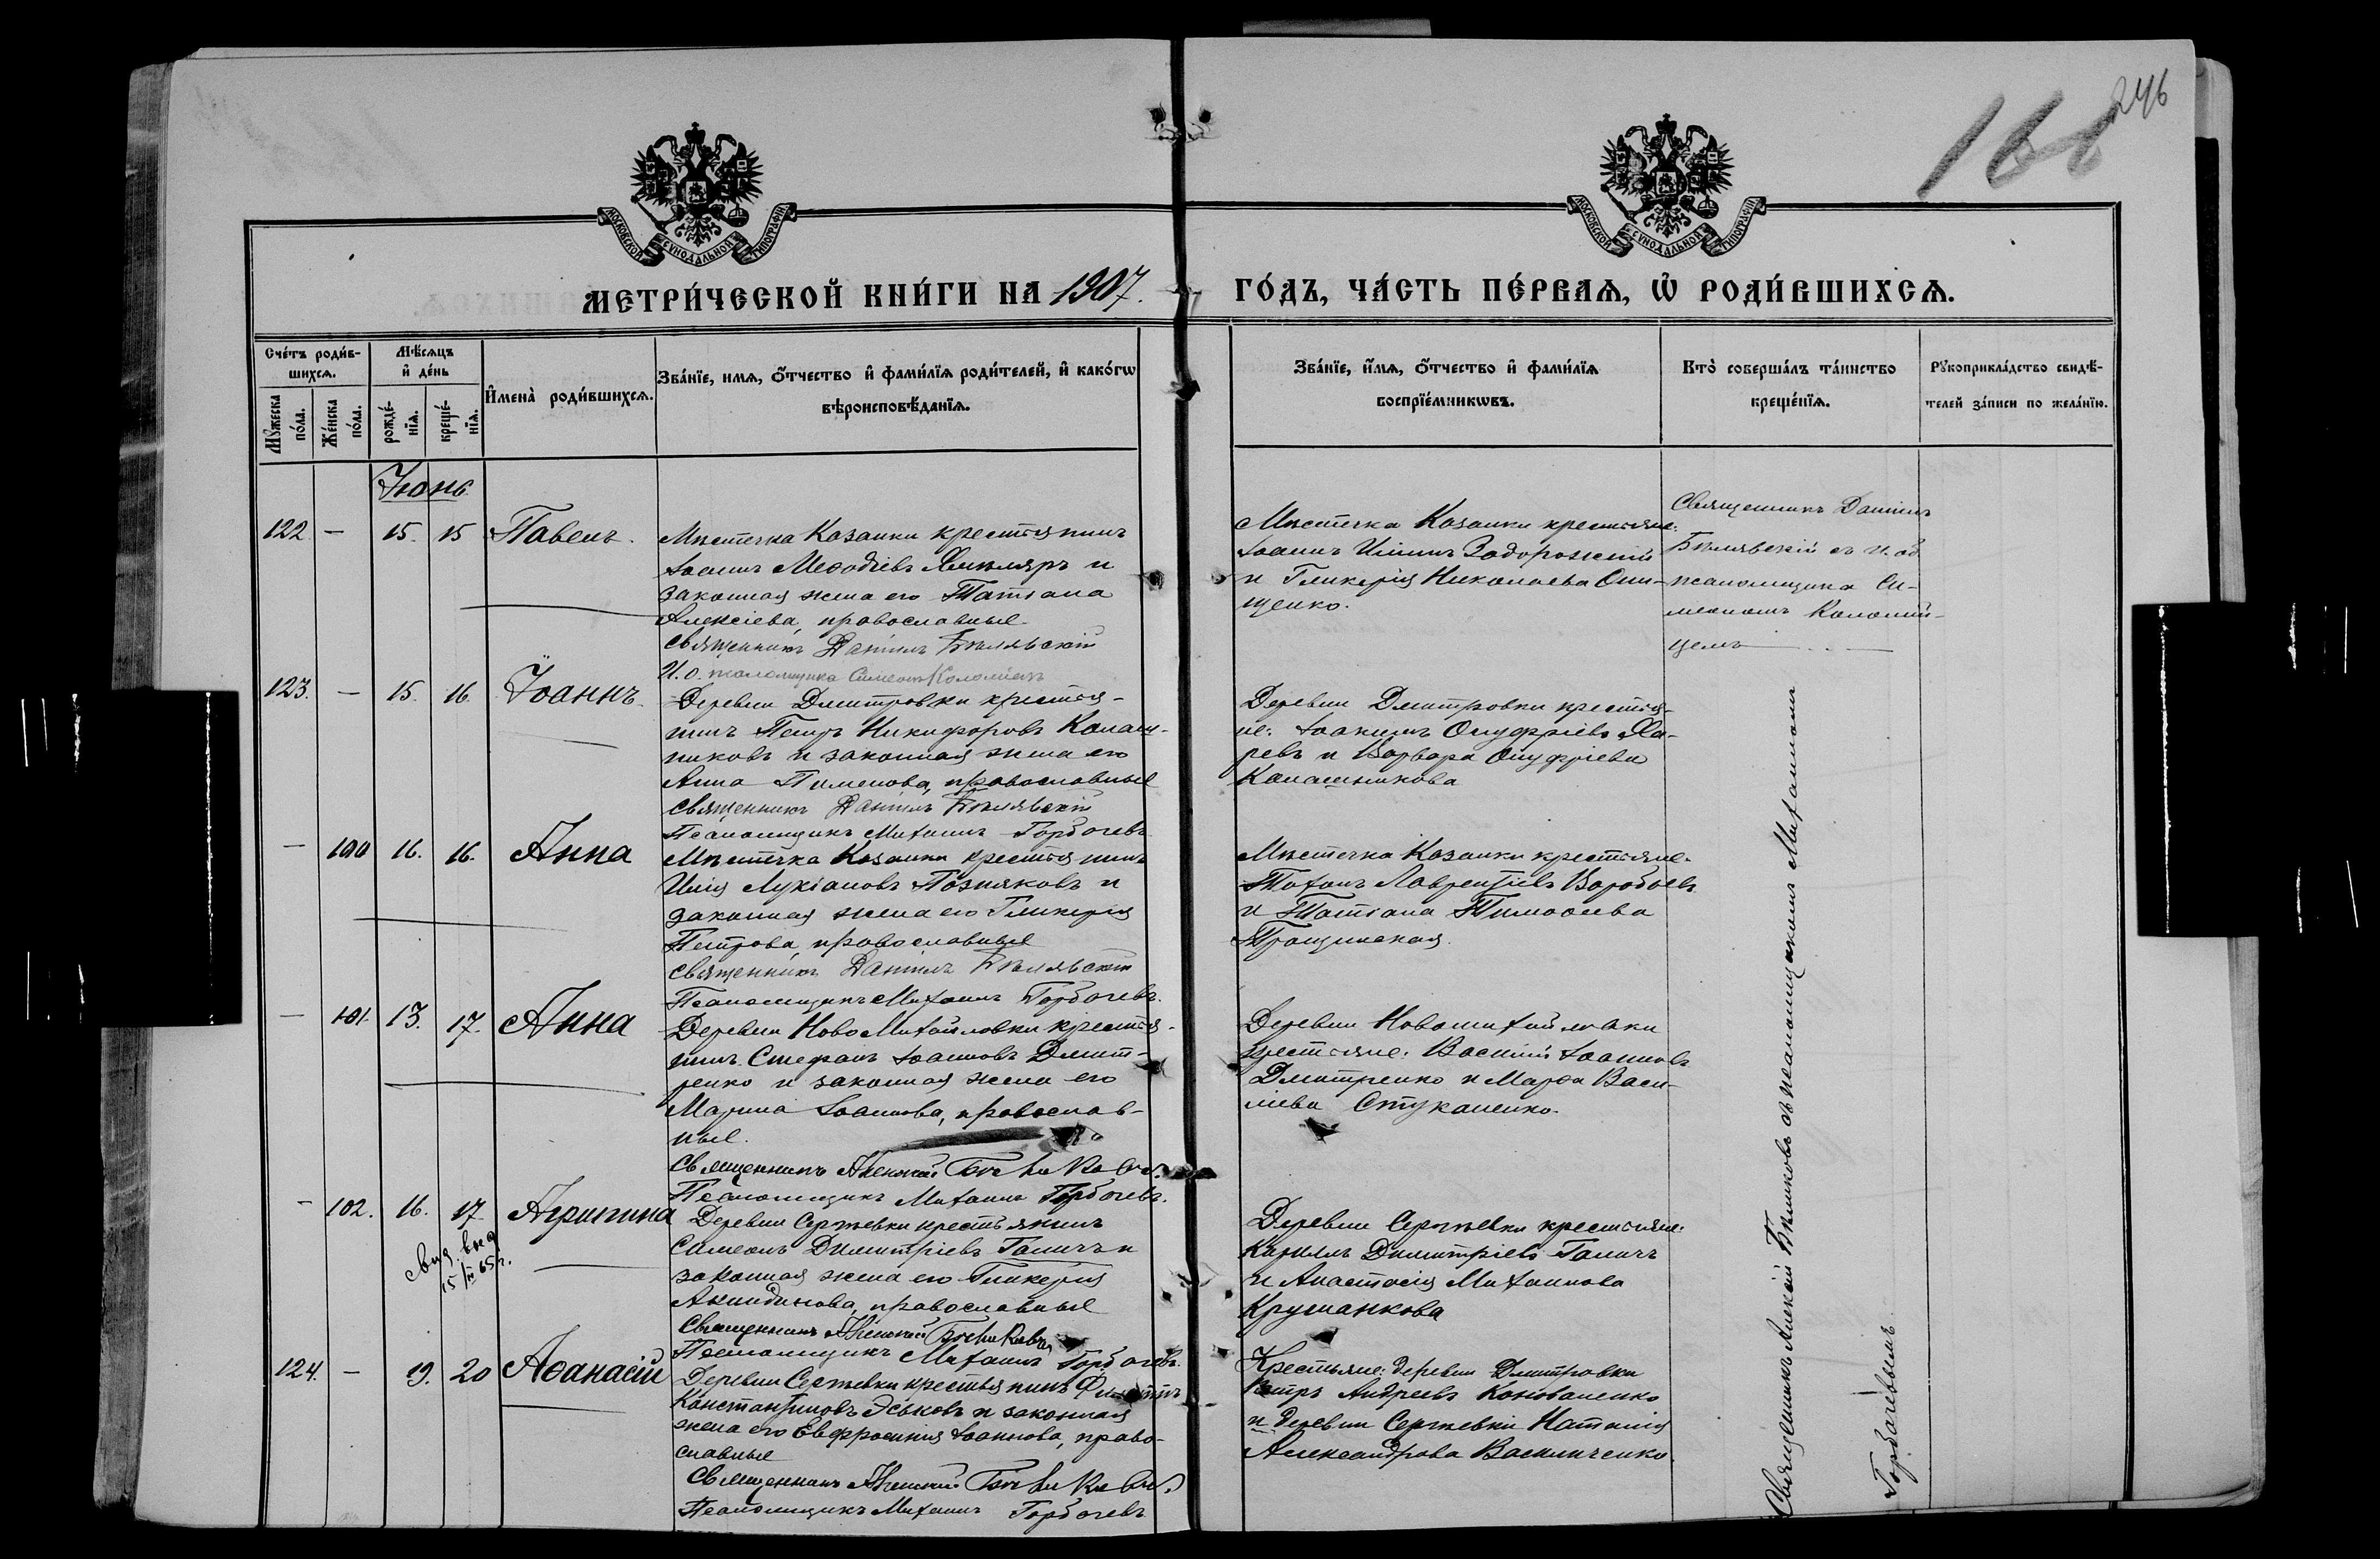 246
166
МОСКОВСКОЙ СѴНОДАЛЬНОЙ ТИПОГРАФІИ
МОСКОВСКОЙ СѴНОДАЛЬНОЙ ТИПОГРАФІИ
МЕТРИ́ЧЕСКОЙ КНИ́ГИ НА 1907. ГО́ДЪ, ЧА́СТЬ ПЕ́РВАѦ, Ѡ҆ РОДИ́ВШИХСѦ.
Сче́тъ роди́в-
шихсѧ.
Мꙋ́жеска по́ла.
Же́нска по́ла.
Мѣ́сѧцъ
и҆ де́нь
рожде́-
нїѧ.
креще́-
нїѧ.
И҆мена̀ роди́вшихсѧ.
Зва́нїе, имѧ, ѻ҆́тчество и҆ фами́лїѧ роди́телей, и҆ како́гѡ
вѣроисповѣ́данїѧ.
Зва́нїе, и҆́мѧ, ѻ҆́тчество и҆ фами́лїѧ
воспрїе́мникѡвъ.
Кто̀ соверша́лъ та́инство
креще́нїѧ.
Рꙋкоприкла́дство свидѣ́-
телей за́писи по жела́нїю.
Іюнь
122. — 15. 15 Павелъ.
Мѣстечка Казанки крестьянинъ
Іоаннъ Меѳодіевъ и
законная жена его Татіана
Алексіева, православные
Священникъ Даніилъ Бѣлявскій
И. о. псаломщика Симеонъ Коломіецъ
Мѣстечка Казанки крестьяне:
Іоаннъ Иліинъ Задорожній
и Гликерія Николаева Они-
щенко.
Священникъ Даніилъ
Бѣлявскій съ и. об.
псаломщика Си-
меономъ Коломій-
цемъ
123. — 15. 16. Іоаннъ.
Деревни Дмитровки крестья-
нинъ Петръ Никифоровъ Калаш-
никовъ и законная жена его
Анна Пименова, православные
Священникъ Даніилъ Бѣлявскій
Псаломщикъ Михаилъ Горбачевъ
Деревни Дмитровки крестья-
не: Іоакимъ Онуфріевъ Ха-
ревъ и Варвара Онуфріева
Калашникова
— 100 16. 16. Анна
Мѣстечка Казанки крестьянинъ
Илія Лукіановъ Позняковъ и
законная жена его Гликерія
Петрова, православные
Священникъ Даніилъ Бѣлявскій
Псаломщикъ Михаилъ Горбачевъ.
Мѣстечка Казанки крестьяне:
Лаврентіевъ Воробьевъ
и Татіана Тимоѳеева
— 101 13. 17. Анна
Деревни НовоМихайловки крестья-
нинъ Стефанъ Іоанновъ Дмит-
ренко и законная жена его
Марина Іоаннова, православ-
ные.
Священникъ Алексій Бѣликовъ.
Псаломщикъ Михаилъ Горбачевъ.
Деревни Новомихайловки
крестьяне: Василій Іоанновъ
Дмитренко и Марѳа Васи-
ліева Стукаленко.
— 102. 16. 17 Агрипина
свид. выд.
15/ 65 г.
Деревни Сергѣевки крестьянинъ
Симеонъ Димитріевъ Галичъ и
законная жена его Гликерія
Акиндинова, православные
Священникъ Алексій Бѣликовъ
Псаломщикъ Михаилъ Горбачевъ.
Деревни Сергѣевки крестьяне:
Кириллъ Димитріевъ Галичъ
и Анастасія Михаилова
Крушанкова
124. — 19. 20 Аѳанасій
Деревни Сергѣевки крестьянинъ
Константиновъ Эськовъ и законная
жена его Евфросинія Іоаннова, право-
славные
Священникъ Алексій Бѣликовъ
Псаломщикъ Михаилъ Горбачевъ
Крестьяне: деревни Дмитровки
Петръ Андреевъ Коноваленко
и деревни Сергѣевки Наталія
Александрова Василиченко.
Священникъ Алексій Бѣликовъ съ псаломщикомъ Михаиломъ
Горбачевымъ